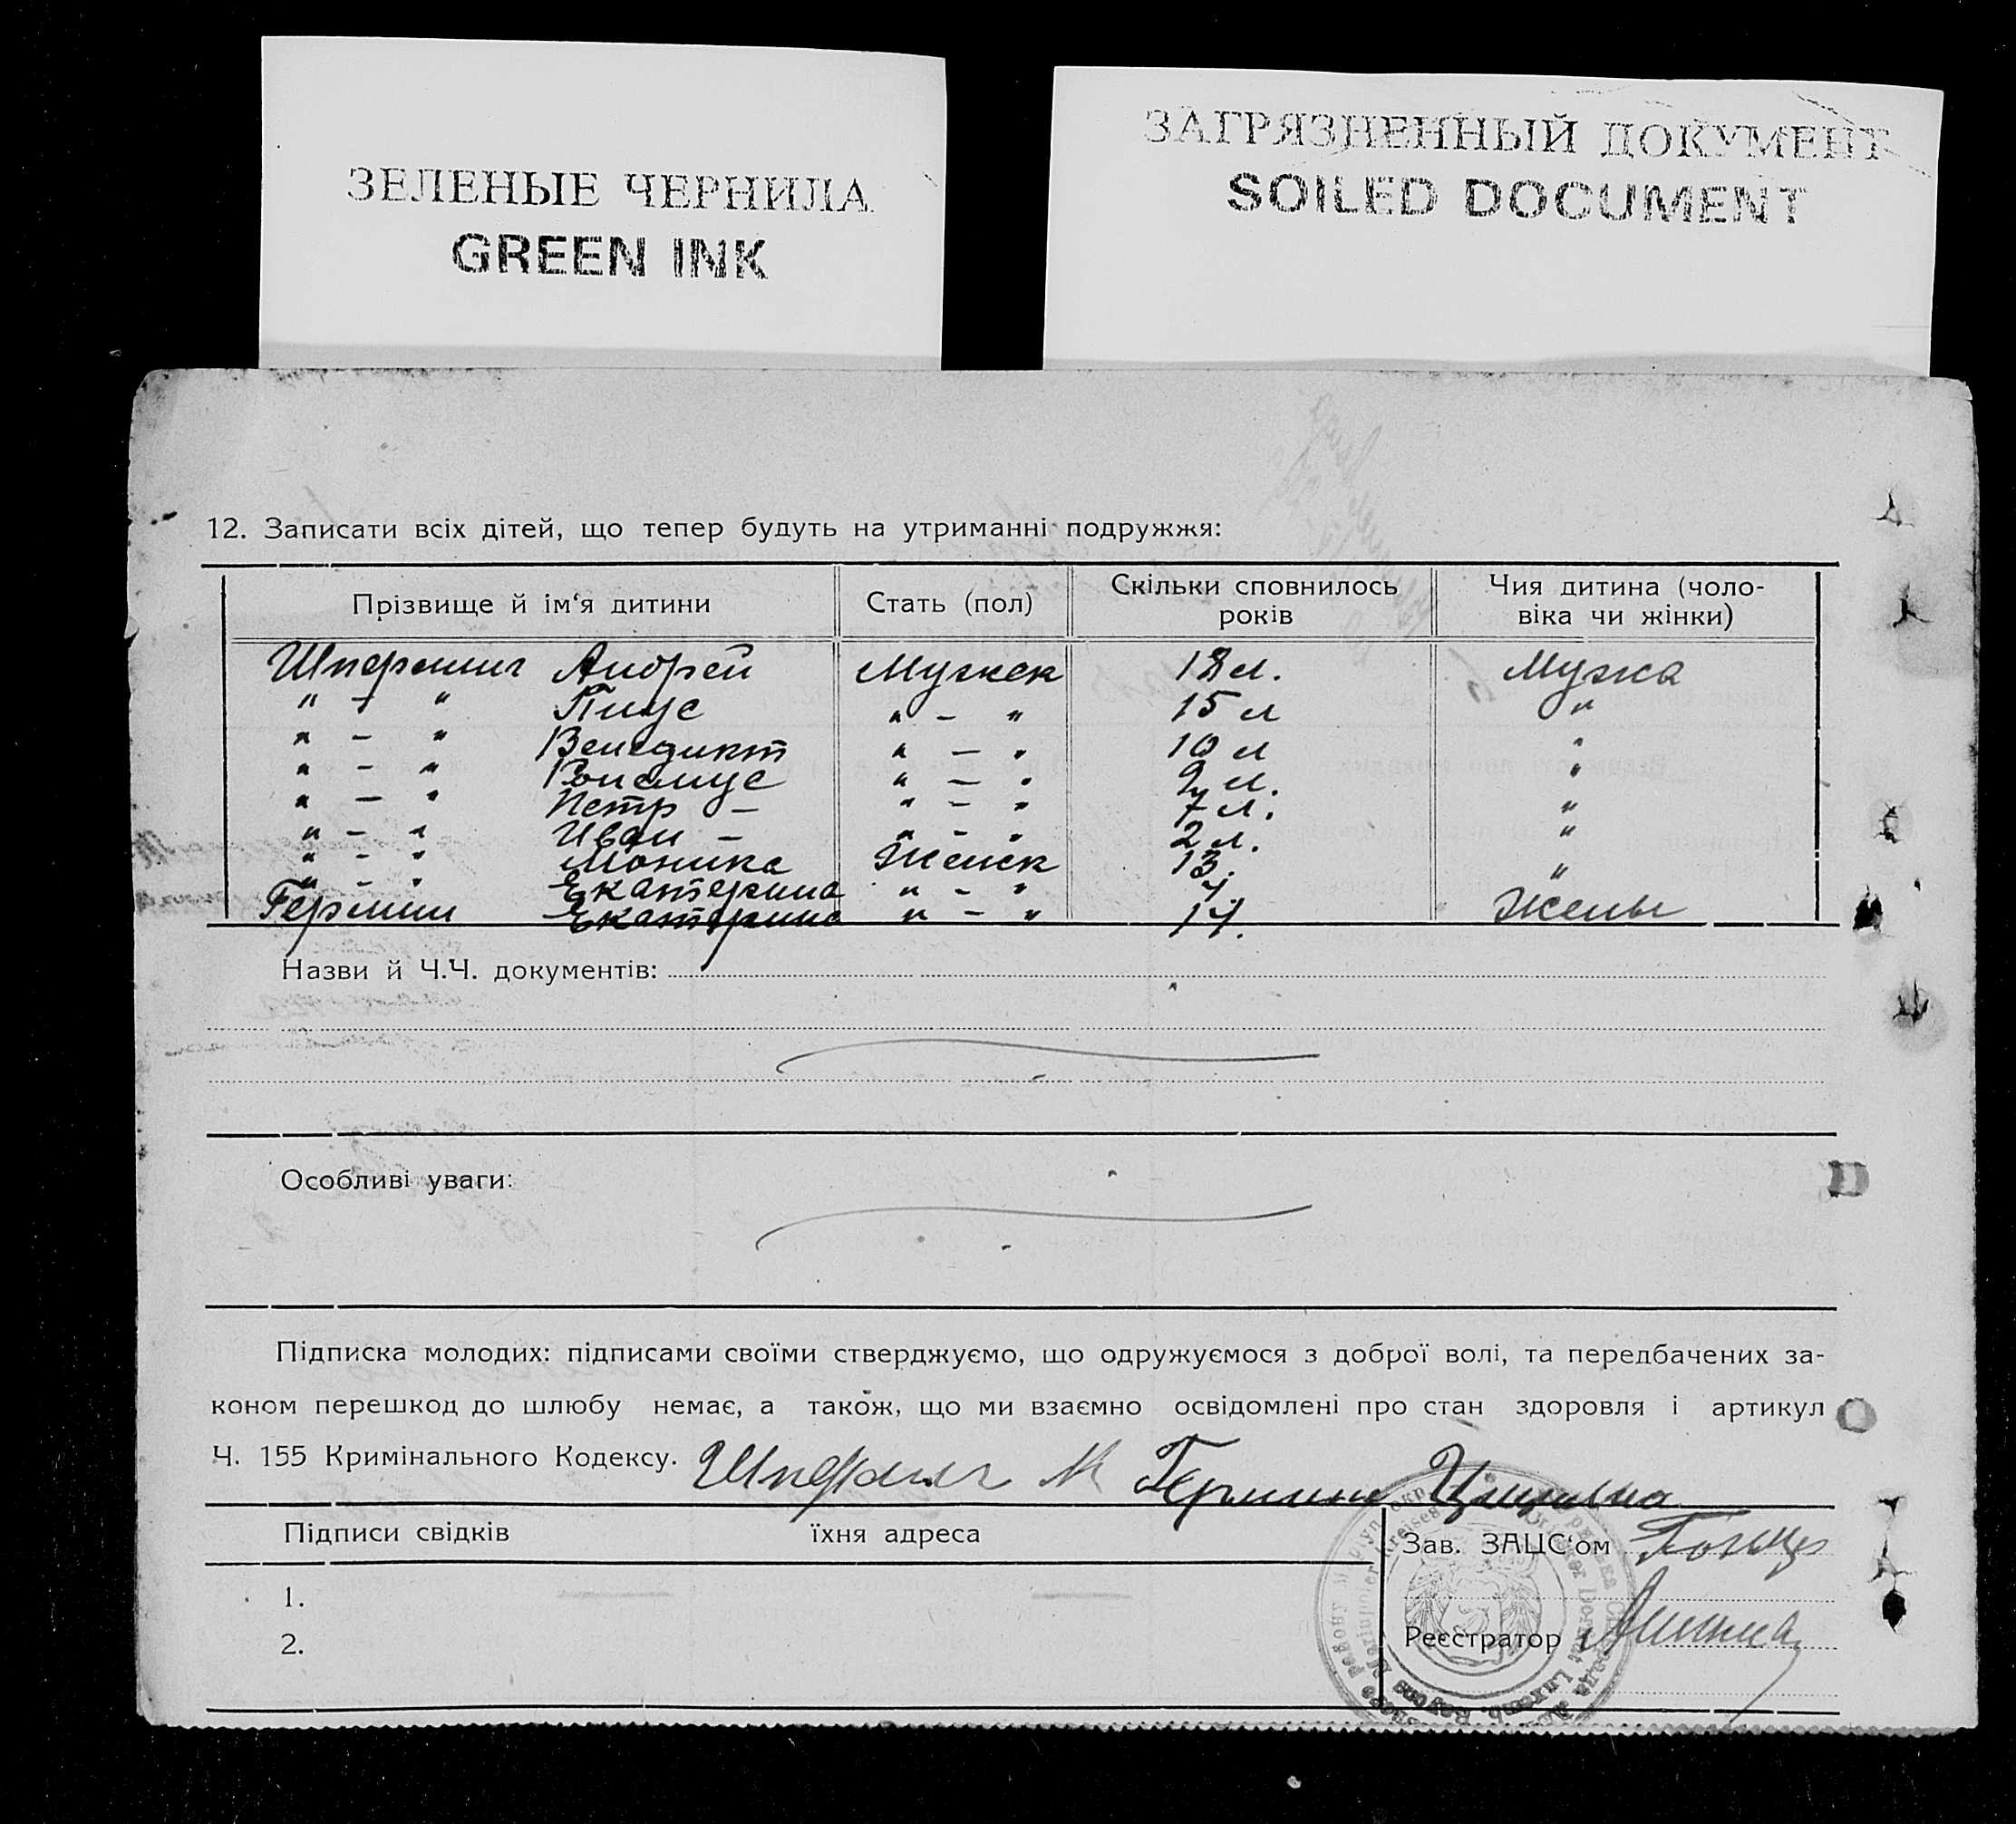 ЗЕЛЕНЫЕ ЧЕРНИЛА
GREEN INK
ЗАГРЯЗНЕННЫЙ ДОКУМЕНТ
SOILED DOCUMENT
12. Записати всіх дітей, що тепер будуть на утриманні подружжя:
Прізвище й ім‘я дитини Стать (пол) Скільки сповнилось років Чия дитина (чоло-віка чи жінки)
Андрей Мужск 18 л. Мужа
" - " Пиус " - " 15 л "
" - " Венедикт " - " 10 л "
" - " " - " 9 л. "
" - " Петр - " - " 7 л. "
" - " Иван - " - " 2 л. "
" - " Моника Женск 13. "
" - " Екатерина " - "
Гермин Екатерина " - " 14. Жены
Назви й Ч.Ч. документів:
Особливі уваги:
Підписка молодих: підписами своїми стверджуємо, що одружуємося з доброї волі, та передбачених за-
коном перешкод до шлюбу немає, а також, що ми взаємно освідомлені про стан здоровля і артикул
Ч. 155 Кримінального Кодексу. Гермин
Підписи свідків їхня адреса
Зав. ЗАЦС‘ом
1.
2.
Реєстратор